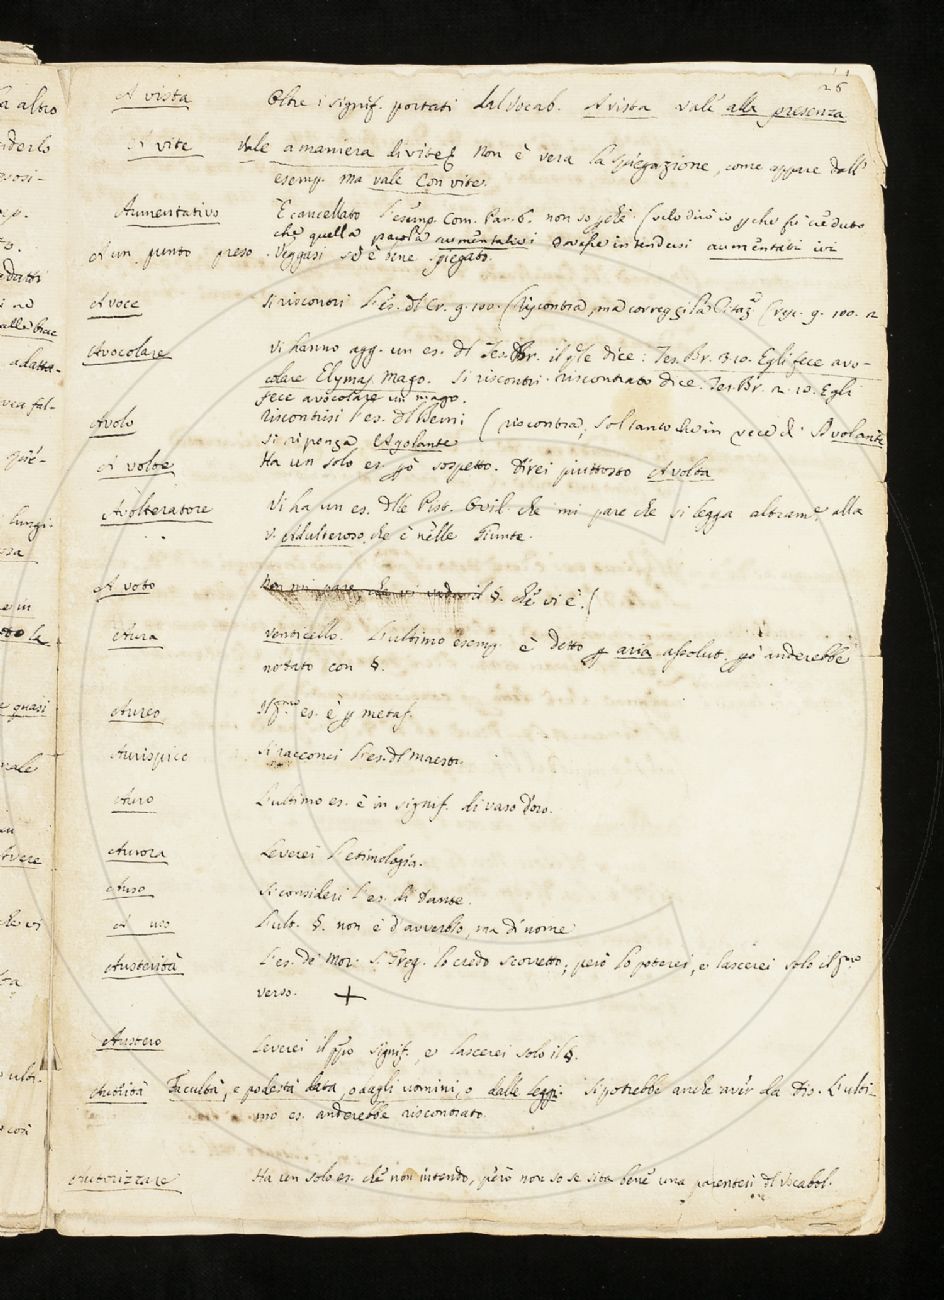 26
A vista Oltre i signif. portati dal Vocab. A vista vale alla presenza
A vite Vale a maniera di vite. Non è vera la spiegazione, come appare dall'
esemp. ma vale Con vite.
Aumentativo È cancellato l'esemp. Com. Par. 6. non so pche (
che quella parola aumentativi dovesse intendersi aumentati ivi
A un punto preso Veggasi se è bene spiegato.
A voce Si riscontri l'es. dl Cr. g. 100. (riscontra, ma correggi la Citaz.
Avocolare Vi hanno agg. un es. dl Tes. Br. il qle dice: Tes. Br. 3. 10. Egli fece avo-
colare Elymas Mago. Si riscontri. riscontrato dice. Tes. Br. 2. 10. Egli
fece avocolare un mago.
Avolo riscontrisi l'es. dl Berni ( riscontra, soltanto che in vece di Avolante
si ripenga Agolante
A volte Ha un solo es. pò sospetto. Direi piuttosto A volta
Avolteratore Vi ha un es. dlle Pist. Ovil. che mi pare che si legga altram. alla
v. Adulteroso, che è nelle Giunte.
A voto Non mi pare che vi vada il §. che vi è. (
Aura Venticello. L'ultimo esemp. è detto p aria assolut. pò anderebbe
notato con §.
Aureo Il pmo es. è p metaf.
Aurispice Si racconci l'es. dl Maestr.
Auro L'ultimo es. è in signif. di vaso d'oro.
Aurora Leverei l'etimologia.
Auso Si consideri l'es. di Dante.
A uso L'ult. §. non è d'avverbio, ma di nome
Austerità L'es. de' Mor. S. Greg. lo credo scorretto, però lo poterei, e lascerei solo il pmo
verso. +
Austero Leverei il ppio signif. e lascerei solo il §.
Autorità Facultà, e podestà data, o dagli uomini, o dalle leggi. Si potrebbe anche aver da Dio. L'ulti-
mo es. anderebbe riscontrato.
Autorizzare Ha un solo es. che non intendo, però non so se stia bene una parentesi dl Vocabol.